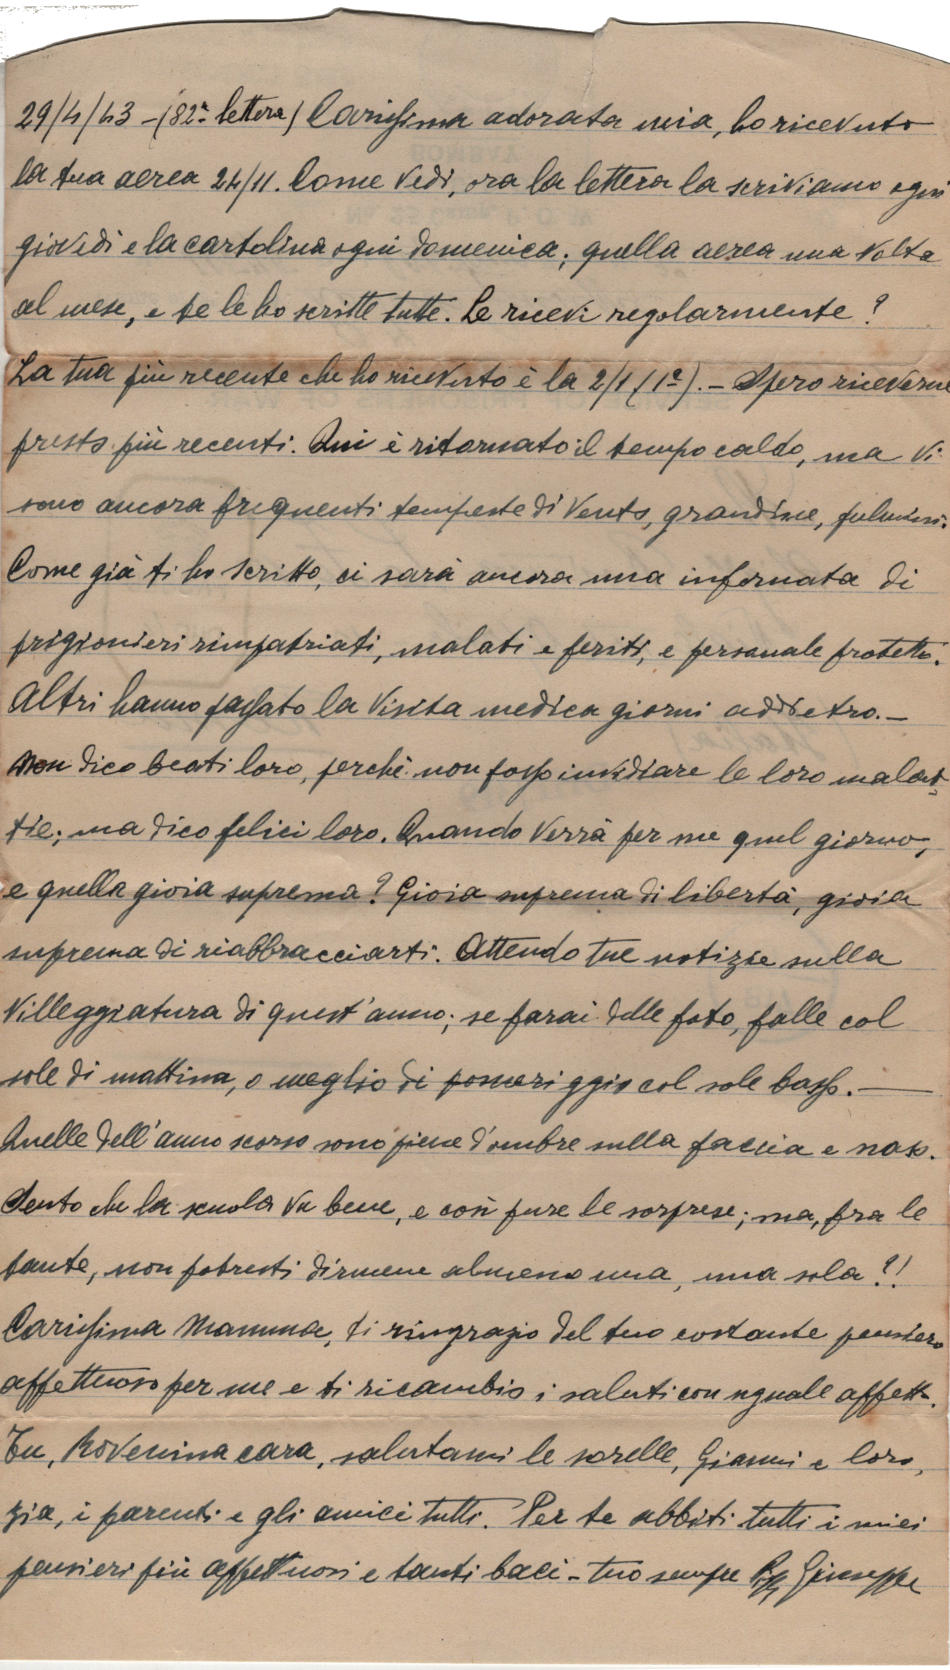 29/4/43 - (82ª lettera) Carissima adorata mia, ho ricevuto
la tua aerea 24/11. Come vedi, ora la lettera la scriviamo ogni
giovedì e la cartolina ogni domenica; quella aerea una volta
al mese, e te le ho scritte tutte. Le ricevi regolarmente?
La tua più recente che ho ricevuto è la 2/1 (1ª). - Spero riceverne
presto più recenti. Qui è ritornato il tempo caldo, ma vi
sono ancora frequenti tempeste di vento, grandine, fulmini.
Come già ti ho scritto, ci sarà ancora una infornata di
prigionieri rimpatriati, malati e feriti, e personale protetto.
Altri hanno passato la visita medica giorni addietro. -
Non dico beati loro, perchè non posso invidiare le loro malat-
tie; ma dico felici loro. Quando verrà per me quel giorno,
e quella gioia suprema? Gioia suprema di libertà, gioia
suprema di riabbracciarti. Attendo tue notizie sulla
villeggiatura di quest'anno; se farai delle foto, falle col
sole di mattina, o meglio di pomeriggio col sole basso. -
Quelle dell'anno scorso sono piene d'ombre sulla faccia e naso.
Sento che la scuola va bene, e così pure le sorprese; ma, fra le
tante, non potresti dirmene almeno una, una sola?!
Carissima Mamma, ti ringrazio del tuo costante pensiero
affettuoso per me e ti ricambio i saluti con uguale affetto.
Tu, Rovenina cara, salutami le sorelle, Gianni e loro,
zia, i parenti e gli amici tutti. Per te abbiti tutti i miei
pensieri più affettuosi e tanti baci - tuo sempre Giuseppe